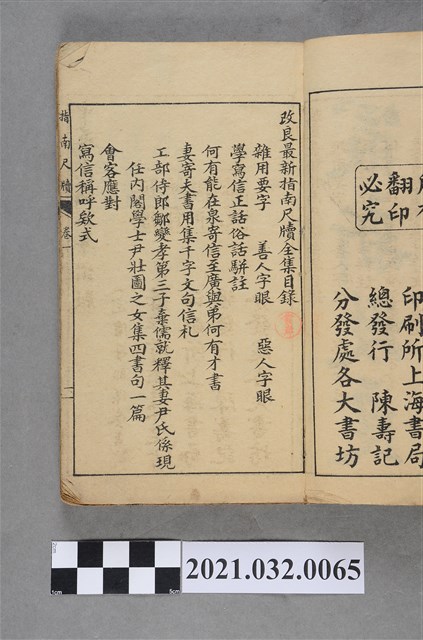 翻印
必究
印刷所上海書局
總發行 陳壽記
分發處各大書坊
改良最新指南尺牘全集目錄
雜用要字 善人字眼 惡人字眼
學寫信正話俗話駢註
何有能在泉寄信至廣與弟何有才書
妻寄夫書用集千字文句信札
工部侍郎鄒變孝第三子棄儒就釋其妻尹氏係現
任內閣學士尹壯圖之女集四書句一篇
會客應對
寫信稱呼欵式
指南尺牘 卷一
2021.032.0065